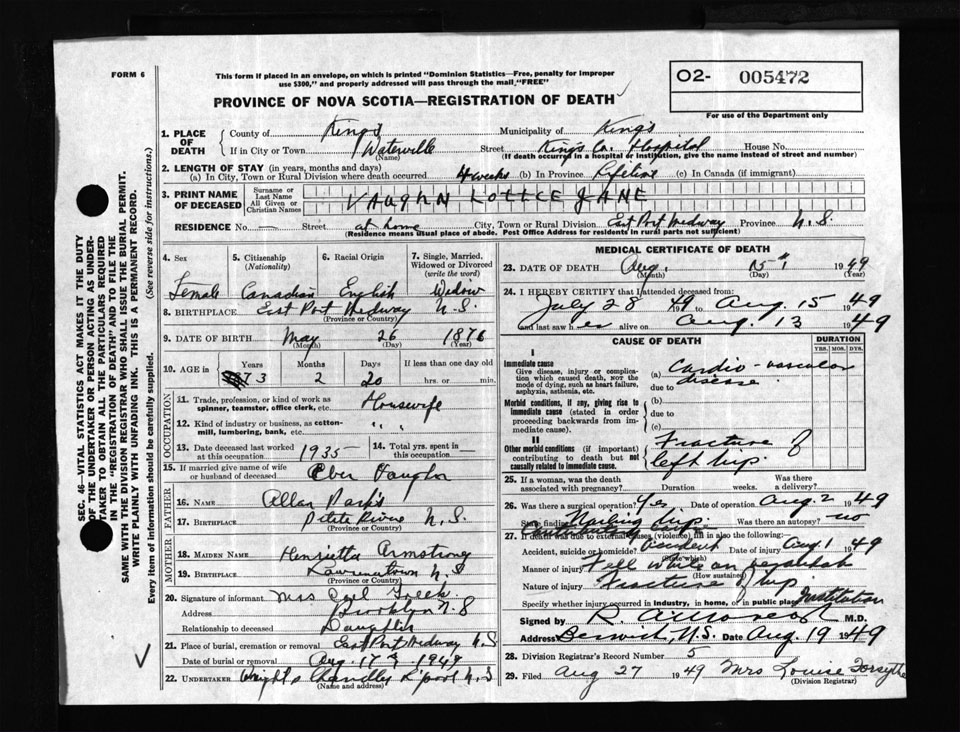 FORM 6
This form if placed in an envelope, on which is printed "Dominion Statistics—Free, penalty for improper
use $300," and properly addressed will pass through the mail "FREE"
O2- 005472
For use of the Department only
PROVINCE OF NOVA SCOTIA—REGISTRATION OF DEATH
SEC. 46—VITAL STATISTICS ACT MAKES IT THE DUTY
OF THE UNDERTAKER OR PERSON ACTING AS UNDER-
TAKER TO OBTAIN ALL THE PARTICULARS REQUIRED
IN THE "REGISTRATION OF DEATH" AND TO FILE THE
SAME WITH THE DIVISION REGISTRAR WHO SHALL ISSUE THE BURIAL PERMIT.
WRITE PLAINLY WITH UNFADING INK. THIS IS A PERMANENT RECORD.
Every item of information should be carefully supplied. (See reverse side for instructions.)
1. PLACE OF DEATH County of Kings Municipality of Kings
If in City or Town Waterville Street Kings Co. Hospital House No.
(Name) (If death occurred in a hospital or institution, give the name instead of street and number)
2. LENGTH OF STAY (in years, months and days)
(a) In City, Town or Rural Division where death occurred 4 weeks (b) In Province Lifetime (c) In Canada (if immigrant)
3. PRINT NAME OF DECEASED Surname or Last Name All Given or Christian Names VAUGHN LOTTCE JANE
RESIDENCE No. — Street at home City, Town or Rural Division East Port Medway Province N.S.
(Residence means usual place of abode. Post Office Address for residents in rural parts not sufficient)
4. Sex 5. Citizenship (Nationality) 6. Racial Origin 7. Single, Married, Widowed or Divorced (write the word)
Female Canadian English Widow
8. BIRTHPLACE East Port Medway N.S.
(Province or Country)
9. DATE OF BIRTH May 26 1876
(Month) (Day) (Year)
10. AGE in Years Months Days If less than one day old
73 2 20 hrs. or min.
OCCUPATION
11. Trade, profession or kind of work as spinner, teamster, office clerk, etc. Housewife
12. Kind of industry or business, as cotton-mill, lumbering, bank, etc. " "
13. Date deceased last worked at this occupation 1935 14. Total yrs. spent in this occupation
15. If married give name of wife or husband of deceased Eber Vaughn
FATHER
16. NAME Allan Parks
17. BIRTHPLACE Petite Riviere N.S.
(Province or Country)
MOTHER
18. MAIDEN NAME Henrietta Armstrong
19. BIRTHPLACE Lawrencetown N.S
(Province or Country)
20. Signature of informant Mrs
Address Brooklyn N.S
Relationship to deceased Daughter
21. Place of burial, cremation or removal East Port Medway N.S
Date of burial or removal Aug. 17 1949
22. UNDERTAKER Wright & Chandler L'pool N.S
(Name and address)
MEDICAL CERTIFICATE OF DEATH
23. DATE OF DEATH Aug. 15 1949
(Month) (Day) (Year)
24. I HEREBY CERTIFY that I attended deceased from:
July 28 1949 to Aug. 15 1949
and last saw her alive on Aug. 13 1949
CAUSE OF DEATH DURATION
YRS. MOS. DYS.
I
Immediate cause
Give disease, injury or complication which caused death, NOT the mode of dying, such as heart failure, asphyxia, asthenia, etc.
(a) Cardio-vascular disease
due to
Morbid conditions, if any, giving rise to immediate cause (stated in order proceeding backwards from immediate cause).
(b)
due to
(c)
II
Other morbid conditions (if important) contributing to death but not causally related to immediate cause.
Fracture of left hip.
25. If a woman, was the death associated with pregnancy? Duration weeks. Was there a delivery?
26. Was there a surgical operation? Yes Date of operation Aug. 2 1949
State findings Nailing hip Was there an autopsy? no
27. If death was due to external causes (violence) fill in also the following:
Accident, suicide or homicide? Accident Date of injury Aug. 1 1949
(State which)
Manner of injury Fell while on verandah
(How sustained)
Nature of injury Fracture of hip
Specify whether injury occurred in industry, in home, or in public place Institution
Signed by R. M.D.
Address Berwick, N.S. Date Aug 19 1949
28. Division Registrar's Record Number 5
29. Filed Aug 27 1949 Mrs Louise Forsythe
(Division Registrar)